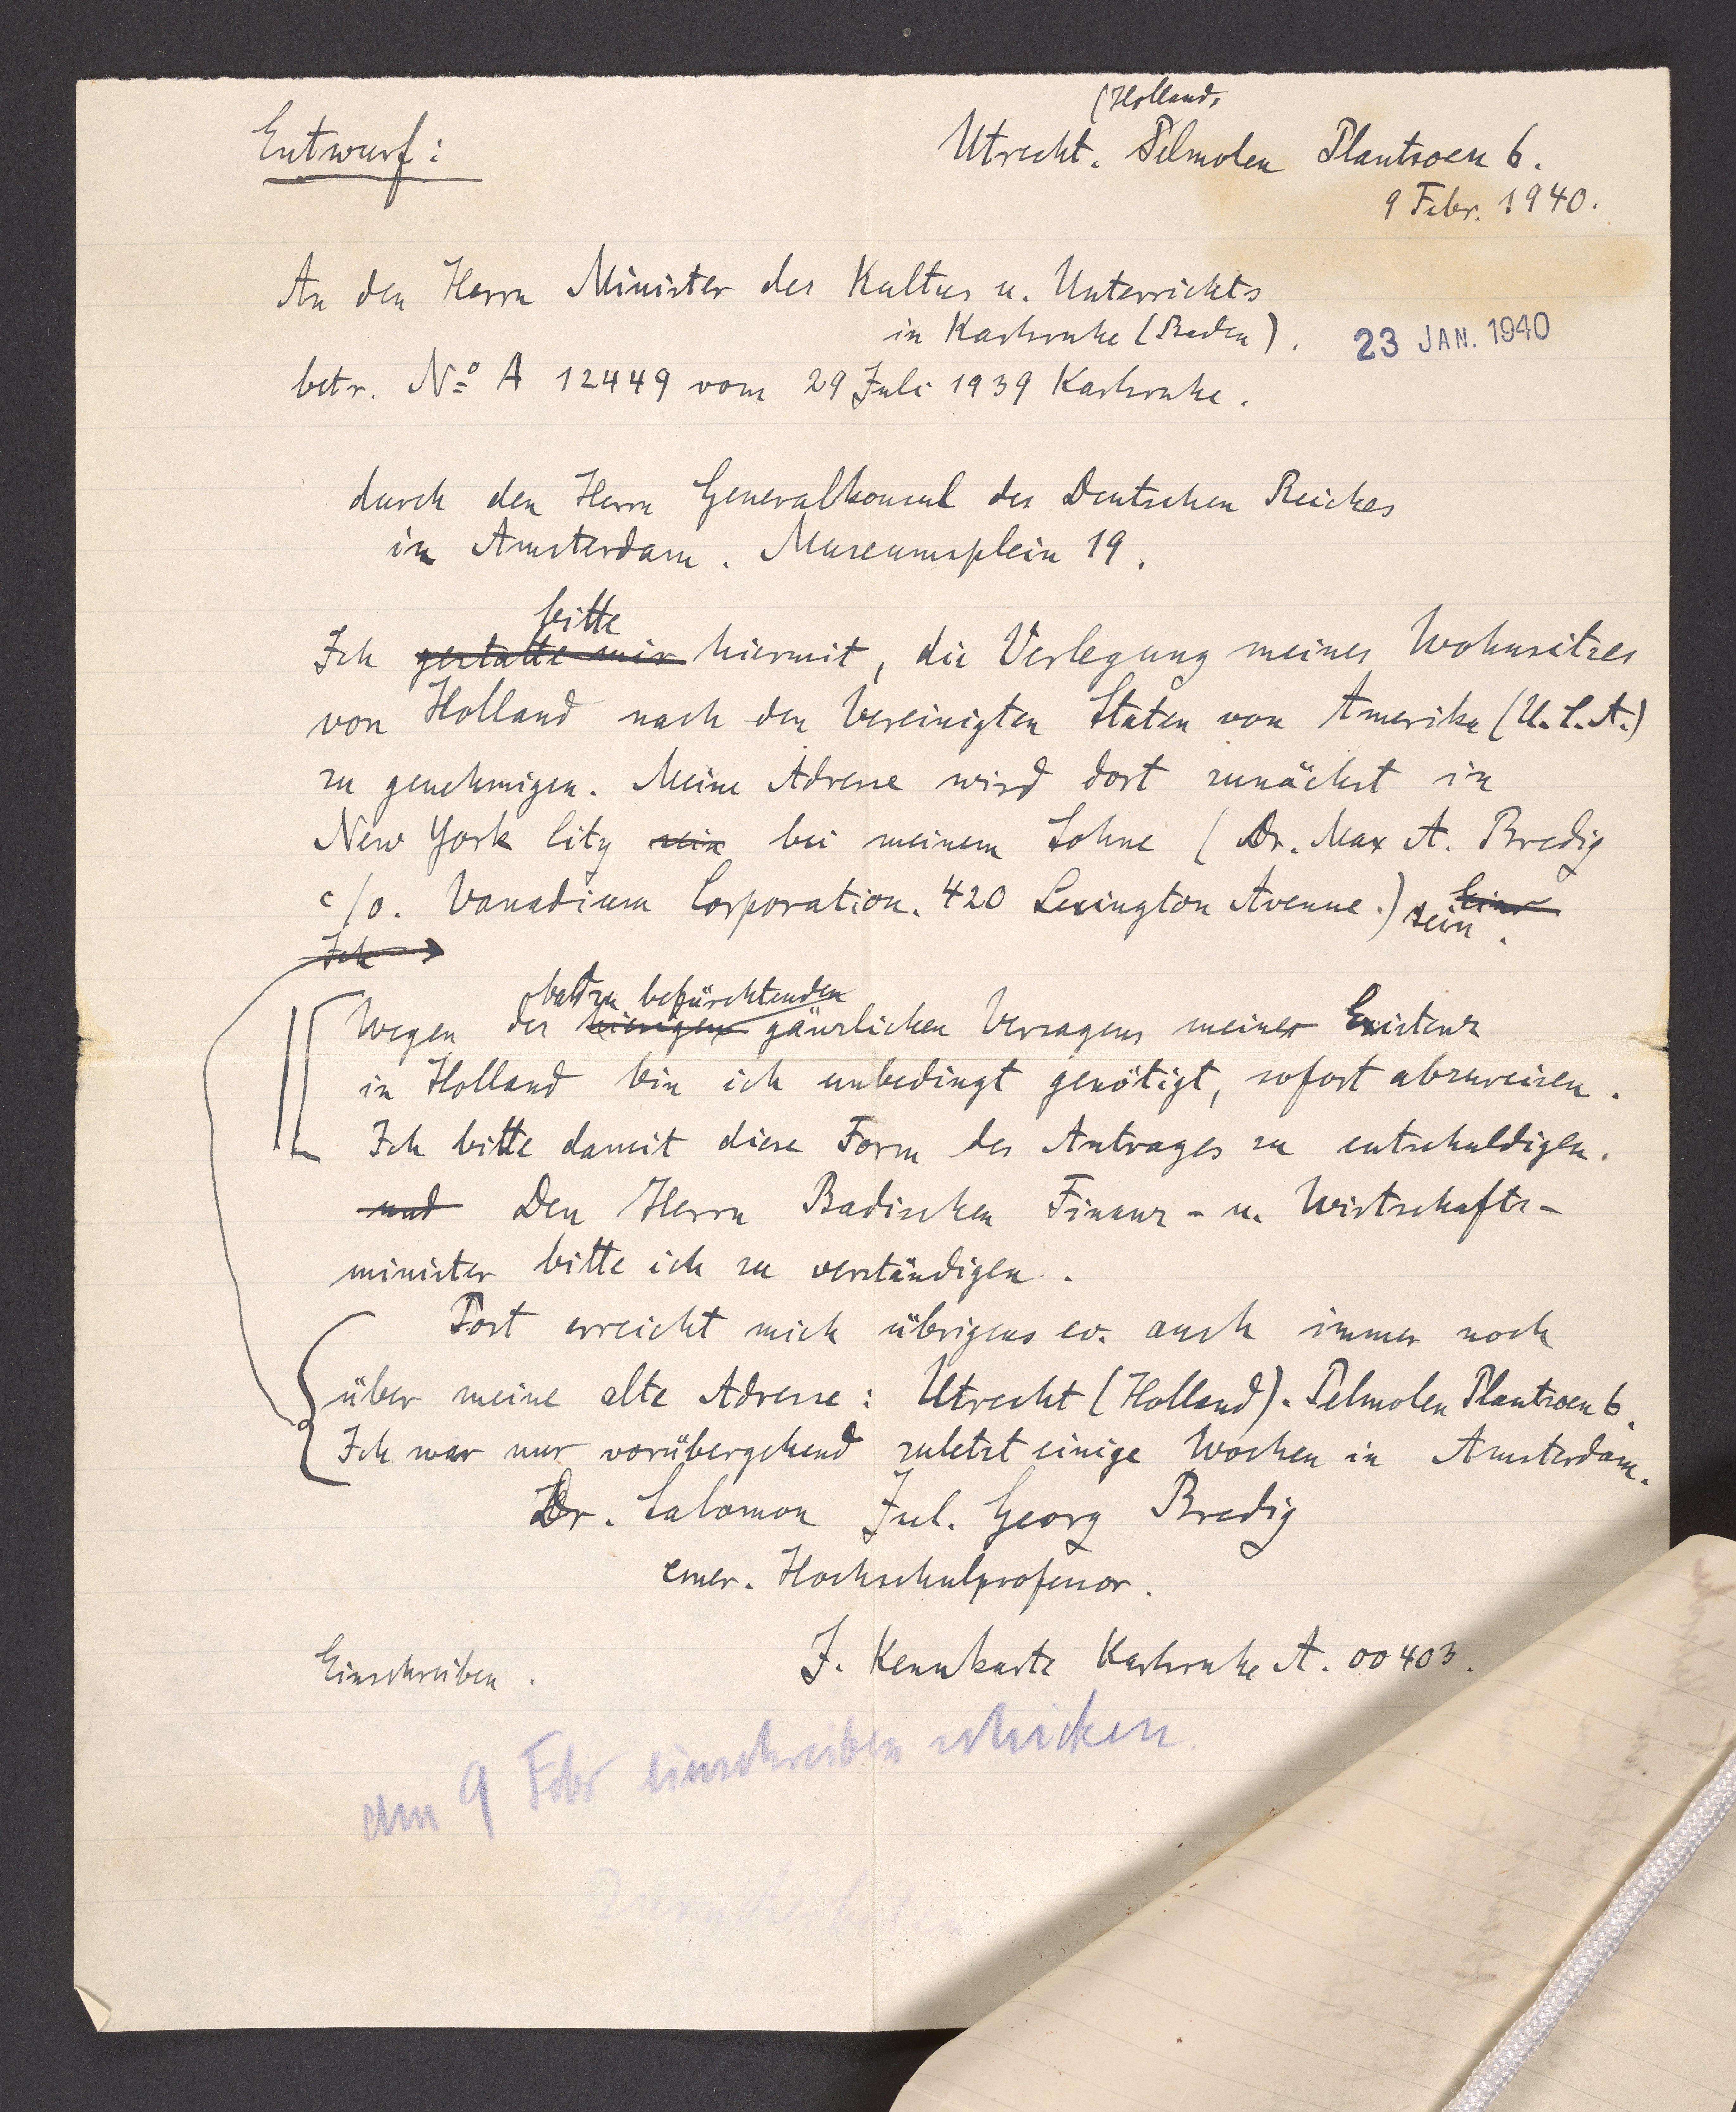 (Holland,
Entwurf: Utrecht. Pelmolen Plantsoen 6.
9 Febr. 1940.
An den Herrn Minister des Kultus u. Unterrichts
in Karlsruhe (Baden).
23 JAN. 1940
betr. No A 12449 vom 29 Juli 1939 Karlsruhe.
durch den Herrn Generalkonsul des Deutschen Reiches
in Amsterdam. Museumsplein 19.
bitte
Ich gestatte mir hiermit, die Verlegung meines Wohnsitzes
von Holland nach den Vereinigten Staten von Amerika (U.S.A.)
zu genehmigen. Meine Adresse wird dort zunächst in
New York City sein bei meinem Sohne (Dr. Max A. Bredig
c/o. Vanadium Corporation. 420 Lexington Avenue.) sein.
Ich
bald zu befürchtenden
Wegen des hiesigen gänzlichen Versagens meiner Existenz
in Holland bin ich unbedingt genötigt, sofort abzureisen.
Ich bitte damit diese Form des Antrages zu entschuldigen.
und Den Herrn Badischen Finanz- u. Wirtschafts-
minister bitte ich zu verständigen.
Post erreicht mich übrigens ev. auch immer noch
über meine alte Adresse: Utrecht (Holland). Pelmolen Plantsoen 6.
Ich war nur vorübergehend zuletzt einige Wochen in Amsterdam.
Dr. Salomon Jul. Georg Bredig
emer. Hochschulprofessor.
Einschreiben. J. Kennkarte Karlsruhe A. 00403.
am 9 Febr einschreiben schicken